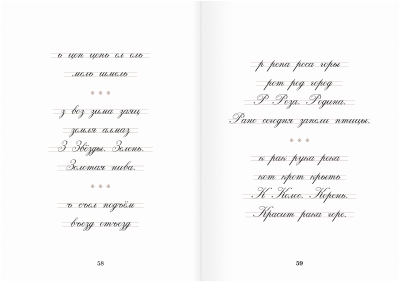 ь цоп цепь ел ель
мель шмель
з воз зима заяц
земля алмаз
З Звёзды. Зелень.
Золотая нива.
ъ съел подъём
въезд отъезд
58
р репа роса горы
рот род город
Р Роза. Родина.
Рано сегодня запели птицы.
к рак рука река
кот крот крыть
К Колос. Корень.
Красит рака горе.
59